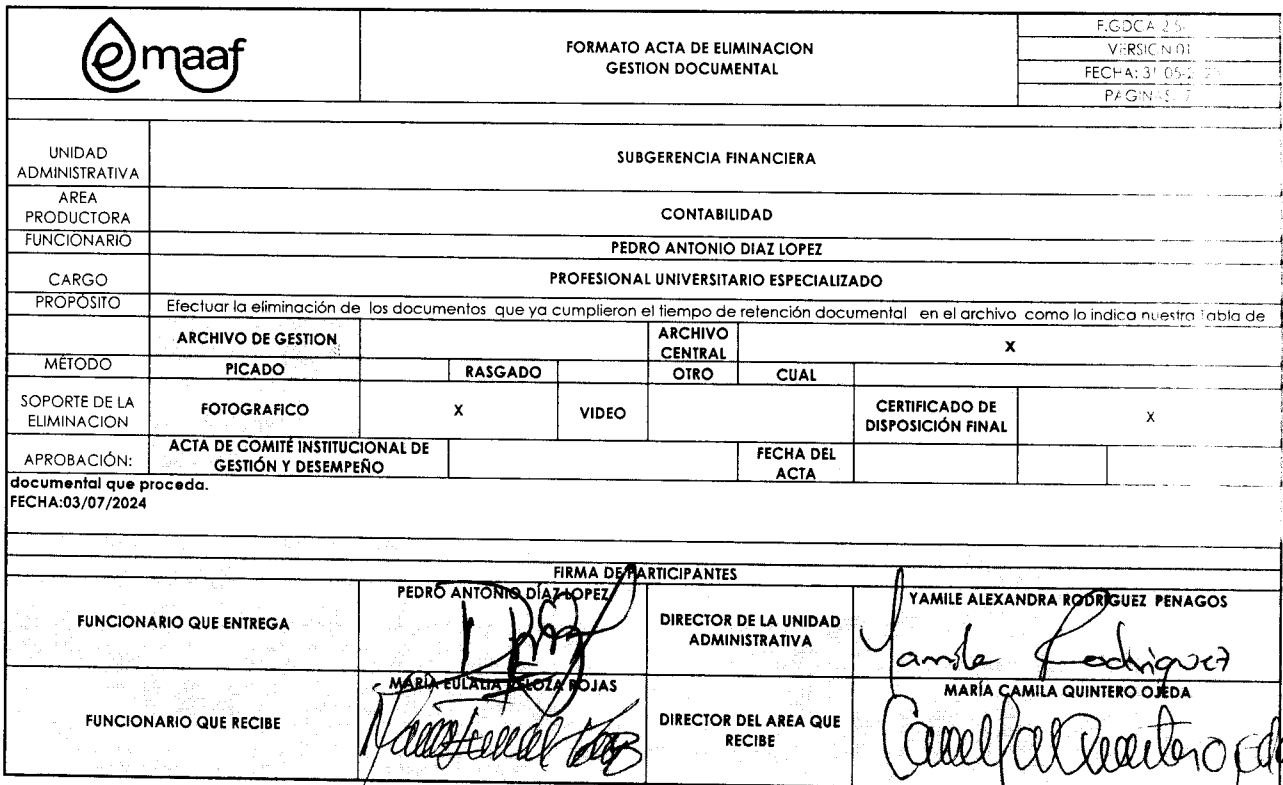 emaaf
FORMATO ACTA DE ELIMINACION
GESTION DOCUMENTAL
F.GDCA
VERSION 01
FECHA: 31-05-
PAGINAS:
UNIDAD
ADMINISTRATIVA
SUBGERENCIA FINANCIERA
AREA
PRODUCTORA
CONTABILIDAD
FUNCIONARIO
PEDRO ANTONIO DIAZ LOPEZ
CARGO
PROFESIONAL UNIVERSITARIO ESPECIALIZADO
PROPÓSITO
Efectuar la eliminación de los documentos que ya cumplieron el tiempo de retención documental en el archivo como lo indica nuestra Tabla de
ARCHIVO DE GESTION
ARCHIVO
CENTRAL
X
MÉTODO
PICADO
RASGADO
OTRO
CUAL
SOPORTE DE LA
ELIMINACION
FOTOGRAFICO
X
VIDEO
CERTIFICADO DE
DISPOSICIÓN FINAL
X
APROBACIÓN:
ACTA DE COMITÉ INSTITUCIONAL DE
GESTIÓN Y DESEMPEÑO
FECHA DEL
ACTA
documental que proceda.
FECHA:03/07/2024
FIRMA DE PARTICIPANTES
FUNCIONARIO QUE ENTREGA
PEDRO ANTONIO DÍAZ LOPEZ
DIRECTOR DE LA UNIDAD
ADMINISTRATIVA
YAMILE ALEXANDRA RODRIGUEZ PENAGOS
Yamile Rodriguez
FUNCIONARIO QUE RECIBE
MARÍA EULALIA BELOZA ROJAS
DIRECTOR DEL AREA QUE
RECIBE
MARÍA CAMILA QUINTERO OJEDA